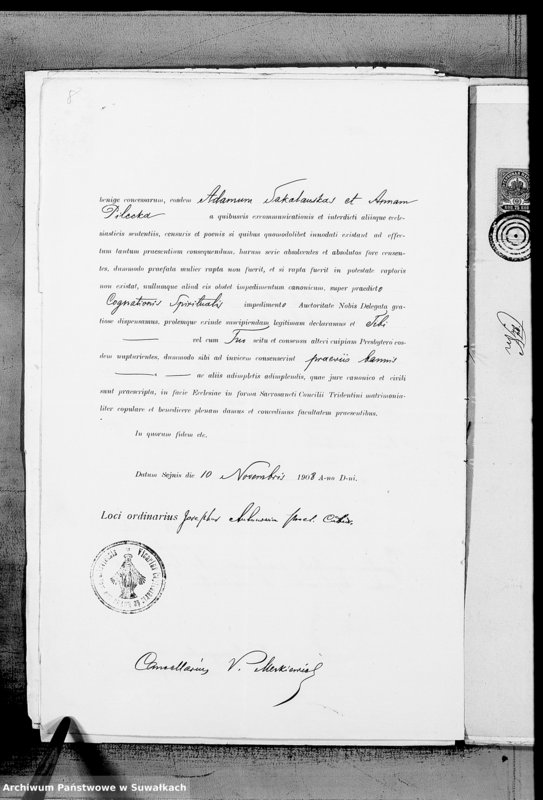 8
benigne concessarum, eosdem Adamum Takabauskas et Annam
Pilecka a quibusvis excommunicationis et interdicti aliisque eccle-
siasticis sententiis, censuris et poenis si quibus quomodolibet innodati existant ad effec-
tum tantum praesentium consequendum, harum serie absolventes et absolutos fore censen-
tes, dummodo praefata mulier rapta non fuerit, et si rapta fuerit in potestate raptoris
non existat, nullumque aliud eis obstet impedimentum canonicum, super praedicto
Cognationis Spiritualis impedimento Auctoritate Nobis Delegata gra-
tiose dispensamus, prolemque exinde suscipiendam legitimam declaramus et Tibi
vel cum Tuo scitu et consensu alteri cuipiam Presbytero eos-
dem nupturientes, dummodo sibi ad invicem consenserint praeviis bannis
ac aliis adimpletis adimplendis, quae jure canonico et civili
sunt praescripta, in facie Ecclesiae in forma Sacrosancti Concilii Tridentini matrimonia-
liter copulare et benedicere plenam damus et concedimus facultatem praesentibus.
In quorum fidem etc.
Datum Sejnis die 10 Novembris 1908 A-no D-ni.
Loci ordinarius Josephus
Cancellarius V.
Archiwum Państwowe w Suwałkach